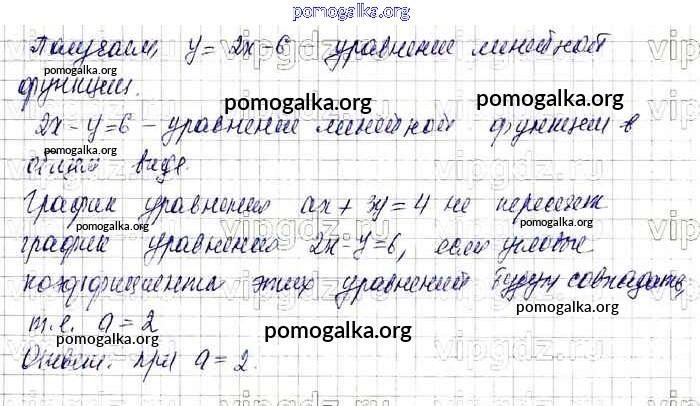 pomogalka.org
Получаем, y = 2x - 6 уравнение линейной
pomogalka.org
функции.
pomogalka.org
pomogalka.org
2x - y = 6 - уравнение линейной функции в
pomogalka.org
общем виде.
График уравнения ax + 3y = 4 не пересечёт
pomogalka.org
pomogalka.org
график уравнения 2x - y = 6, если угловые
pomogalka.org
коэффициенты этих уравнений будут совпадать,
т.е. a = 2
pomogalka.org
pomogalka.org
Ответ: при a = 2.
vipgdz.ru